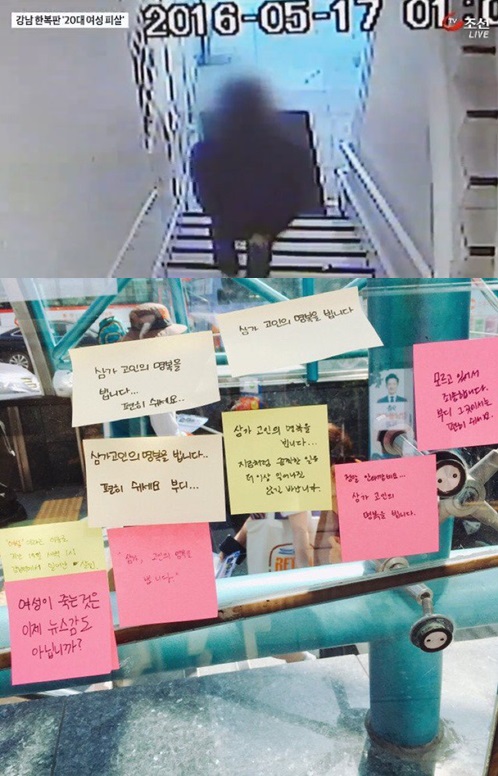 강남 한복판 '20대 여성 피살'
2016-05-17 01:0
TV조선
LIVE
삼가 고인의 명복을 빕니다
삼가 고인의 명복을
빕니다...
편히 쉬세요..
모르고 있어서
죄송합니다.
부디 그곳에서는
편히 쉬세요.
삼가 고인의 명복을
빕니다...
지금처럼 끔찍한 일은
더 이상 일어나질
않길 바랍니다.
삼가고인의 명복을 빕니다..
편히 쉬세요 부디...
삼가 고인의
명복을 빕니다.
"삼가, 고인의 명복을
빕니다."
여성이 죽는것은
이제 뉴스감도
아닙니까?